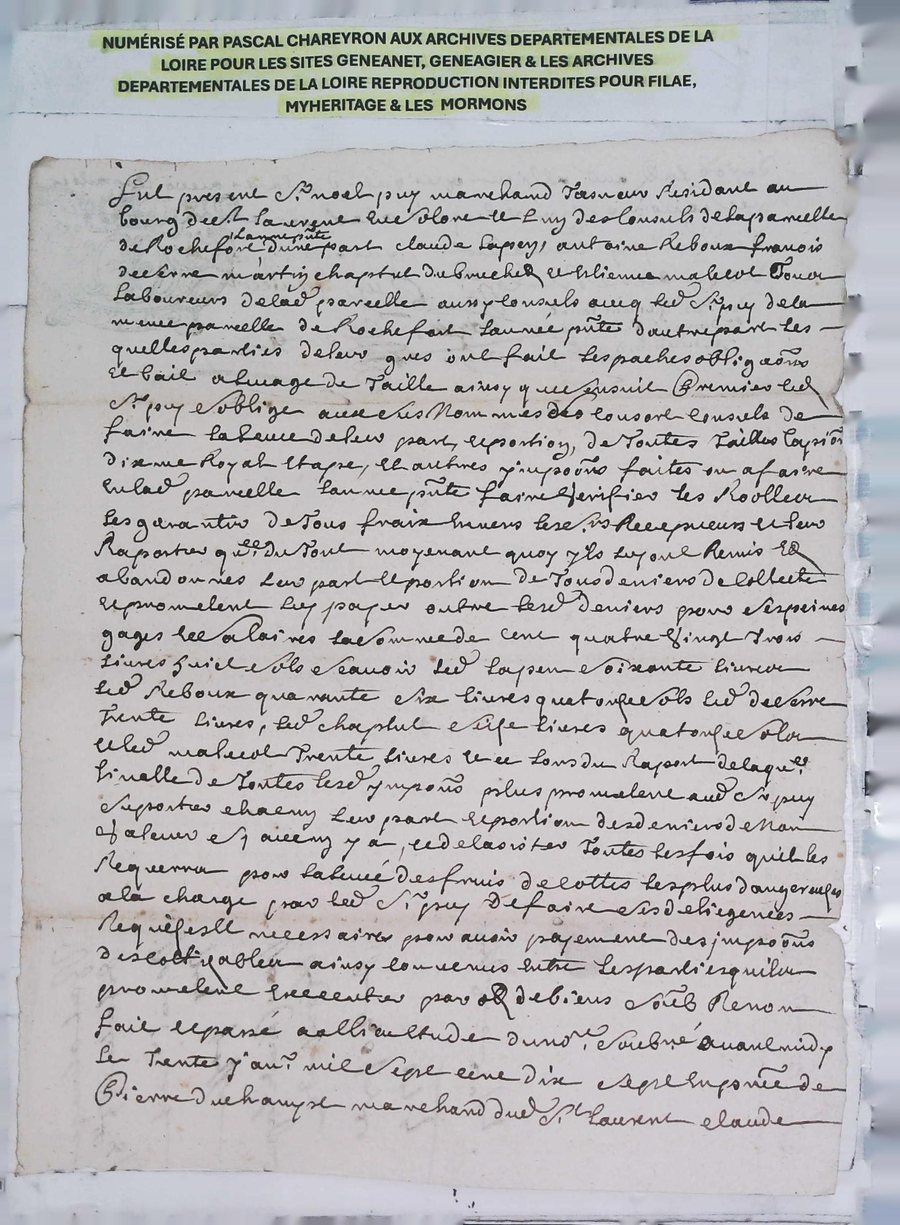 NUMÉRISÉ PAR PASCAL CHAREYRON AUX ARCHIVES DEPARTEMENTALES DE LA
LOIRE POUR LES SITES GENEANET, GENEAGIER & LES ARCHIVES
DEPARTEMENTALES DE LA LOIRE REPRODUCTION INTERDITES POUR FILAE,
MYHERITAGE & LES MORMONS
fut present Sr noel puy marchand Residant au
bourg de St laurent et luy des Consuls de la parcelle
de Rochefort lannee pnte dune part claude lapen, antoine Reboux francois
deserre martin chaptut du et Estienne malecot Tous
Laboureurs de lad parcelle aussy Consuls avecq led Sr puy de la
meme parcelle de Rochefort Lannée pnte dautre part les
quelles parties de leur gres ont fait les paches obligaons
et bail a levage de Taille ainsy que sensuit Premier led
Sr puy soblige aux susNommes de Consort Consuls de
faire la levee de leur part et portion, de Toutes Tailles
dixme Royal Etape, et autres ympoons faites ou a faire
en lad parcelle lannee pnte faire verifier les Rooller
les garantir de Tous fraix envers les Srs Recepveurs et leur
Raporter qee du Tout moyenant quoy yls luy ont Remis et
abandonnes leur part et portion de Tous deniers de Collecte
et prometent luy payer outre lesd deniers pour ses peines
gages et salaires la somme de cent quatre vingt Trois
livres huict sols scavoir led lapen soixante livres
led Reboux quarante six livres quatorze sols led deserre
Trente livres, led chaptut seize livres quatorze solz
et led malecot Trente livres et ce lors du Raport de laqee
finalle de Toutes lesd ympoons plus prometent aud Sr puy
suporter chacun leur part et portion des deniers de Non
valeur sy aucun y a, et de lasister Toutes les fois quil les
Requerra pour la levée des fruis de cottes les plus dangereuses
a la charge par led Sr puy de faire ses deligences
Requises et necessaires pour avoir payement des impoons
des cottizables ainsy Convenus entre les parties quilz
prometent executer par de biens soub Renon
fait et passé a de not. soubné avant midy
le Trente janr. mil sept cent dix sept en pnce de
Pierre duchampt marchand dud St Laurent claude